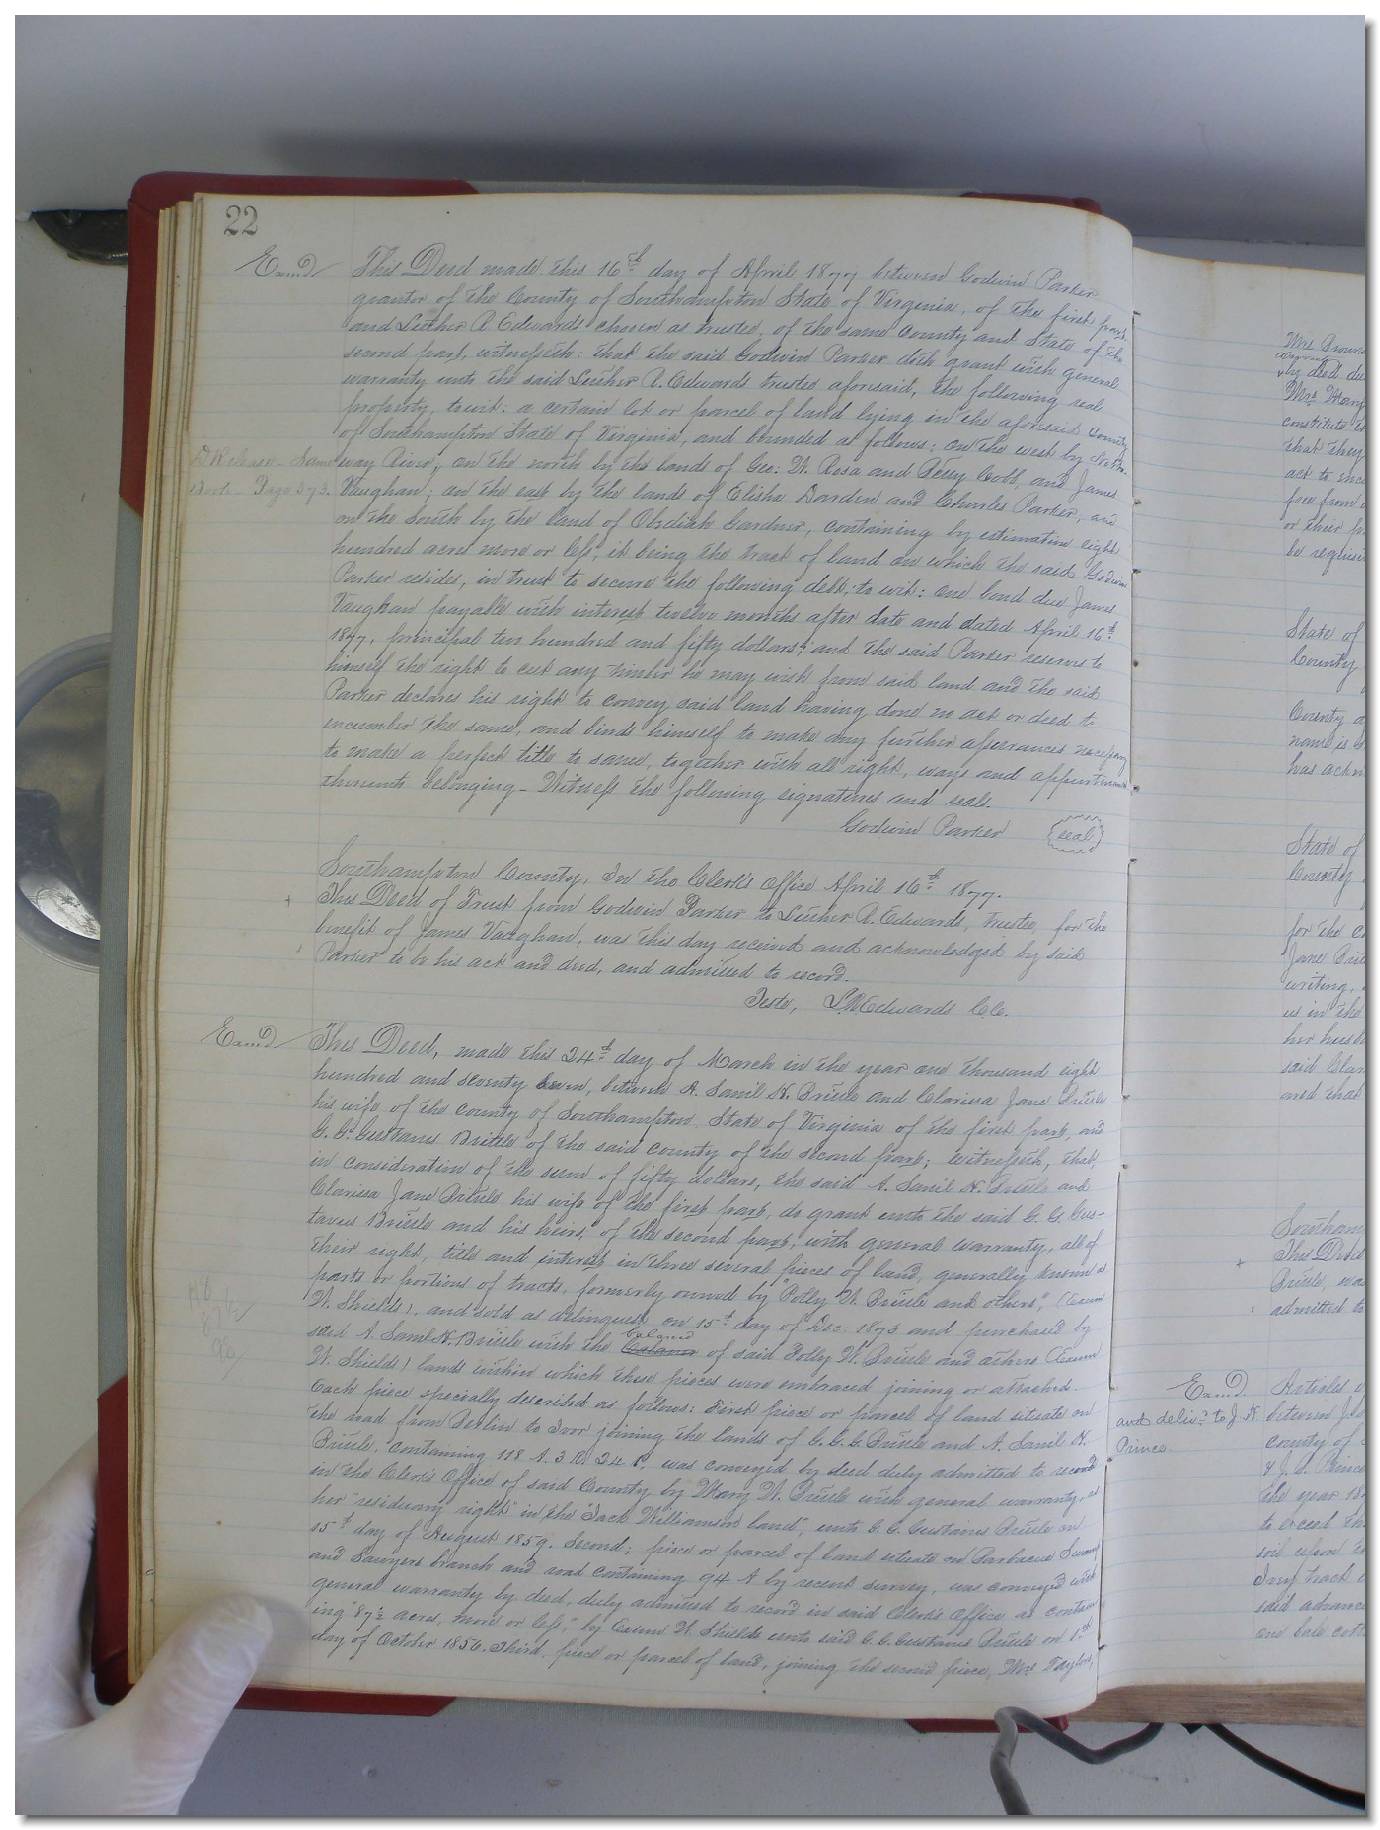 22
Exm'd
This Deed made this 16th day of April 1877 between Godwin Parker
grantor of the County of Southampton State of Virginia, of the first part
and Luther R. Edwards chosen as trustee, of the same County and State of the
second part, witnesseth: that the said Godwin Parker doth grant with general
warranty unto the said Luther R. Edwards trustee aforesaid, the following real
property, to wit: a certain lot or parcel of land lying in the aforesaid County
of Southampton State of Virginia, and bounded as follows: on the west by Notto-
D Release Same
way River, on the north by the lands of Geo: W. Rosa and Cobb, and James
Book Page 373.
Vaughan; on the east by the lands of Elisha Darden and Charles Parker, and
on the South by the land of Obediah Gardner, containing by estimation eight
hundred acres more or less, it being the tract of land on which the said Godwin
Parker resides, in trust to secure the following debt, to wit: one bond due James
Vaughan payable with interest twelve months after date and dated April 16th
1877, principal ten hundred and fifty dollars; and the said Parker reserves to
himself the right to cut any timber he may wish from said land and the said
Parker declares his right to convey said land having done no act or deed to
encumber the same, and binds himself to make any further assurances necessary
to make a perfect title to same, together with all right, ways and appurtenances
thereunto belonging - Witness the following signatures and seals.
Godwin Parker (seal)
Southampton County, In the Clerk's Office April 16th 1877.
This Deed of Trust from Godwin Parker to Luther R. Edwards, trustee, for the
benefit of James Vaughan, was this day received and acknowledged by said
Parker to be his act and deed, and admitted to record.
Teste, L.R. Edwards C.C.
Exm'd
This Deed, made this 24th day of March in the year one thousand eight
hundred and seventy seven, between A. Saml H. Britle and Clarissa Jane Britle
his wife, of the county of Southampton, State of Virginia of the first part, and
G. G. Gustavus Britle of the said county of the second part; witnesseth, that,
in consideration of the sum of fifty dollars, the said A. Saml H. Britle and
Clarissa Jane Britle his wife of the first part, do grant unto the said G. G. Gus-
tavus Britle and his heirs, of the second part, with general warranty, all of
their right, title and interest in three several pieces of land, generally known as
parts or portions of tracts, formerly owned by "Polly W. Britle and others", (
W. Shields), and sold as delinquent on 15th day of Dec. 1873 and purchased by
said A. Saml. H. Britle with the balance of said Polly W. Britle and others (
W. Shields) lands within which these pieces were embraced joining or attached.
Each piece specially described as follows: First piece or parcel of land situate on
the road from Berlin to Ivor joining the lands of G. G. G. Britle and A. Saml H.
Britle, containing 118 A. 3 R. 24 P. was conveyed by deed duly admitted to record
in the Clerk's Office of said County by Mary W. Britle with general warranty, as
her "residuary right" in the "Jack Williamson land", unto G. G. Gustavus Britle on
15th day of August 1859. Second; piece or parcel of land situate on Barbecue Swamp
and Sawyers branch and road containing 94 A by recent survey, was conveyed with
general warranty by deed, duly admitted to record in said Clerk's Office as contain-
ing "87½ acres, more or less," by W. Shields unto said G. G. Gustavus Britle on 1st
day of October 1856. Third, piece or parcel of land, joining the second piece, Mrs Taylor,
Mrs
by deed du
Mrs Mary
constitute
that they
act to
free from
or their
be requisi
State of
County
County
name is
has ackn
State of
County
for the
Jane
writing,
us in the
her husb
said Clar
and that
Southam
This Deed
Britle,
admitted to
Exm'd.
and deliv'd to J. H.
Prince
Articles
between
county of
& J. Prince
the year
said advance
one bale cott